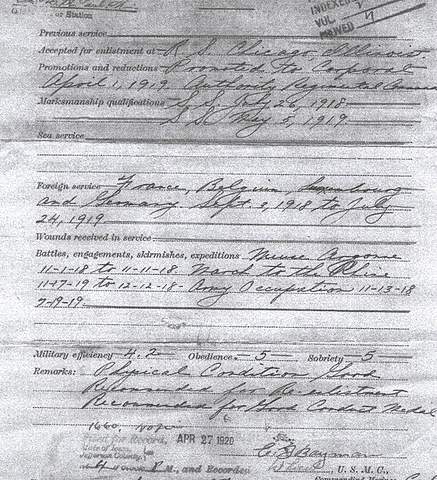 of Station
INDEXED
VOL.
Previous service
Accepted for enlistment at R. S. Chicago, Illinois.
Promotions and reductions Promoted to Corporal
April 1, 1919. Authority Regimental
Marksmanship qualifications S. S. July 26, 1918.
S. S. May 5, 1919.
Sea service
Foreign service France, Belgium, Luxembourg
and Germany. Sept. 2, 1918 to July
24, 1919
Wounds received in service
Battles, engagements, skirmishes, expeditions Meuse Argonne
11-1-18 to 11-11-18. March to the Rhine
11-17-19 to 12-12-18 Army Occupation 11-13-18
7-19-19.
Military efficiency 4.2 Obedience 5 Sobriety 5
Remarks: Physical Condition Good
Recommended for Re-enlistment
Recommended for Good Conduct Medal
Filed for Record, APR 27 1920
State of Iowa
Jefferson County
M., and Recorded
U. S. M. C.,
Commanding Marines